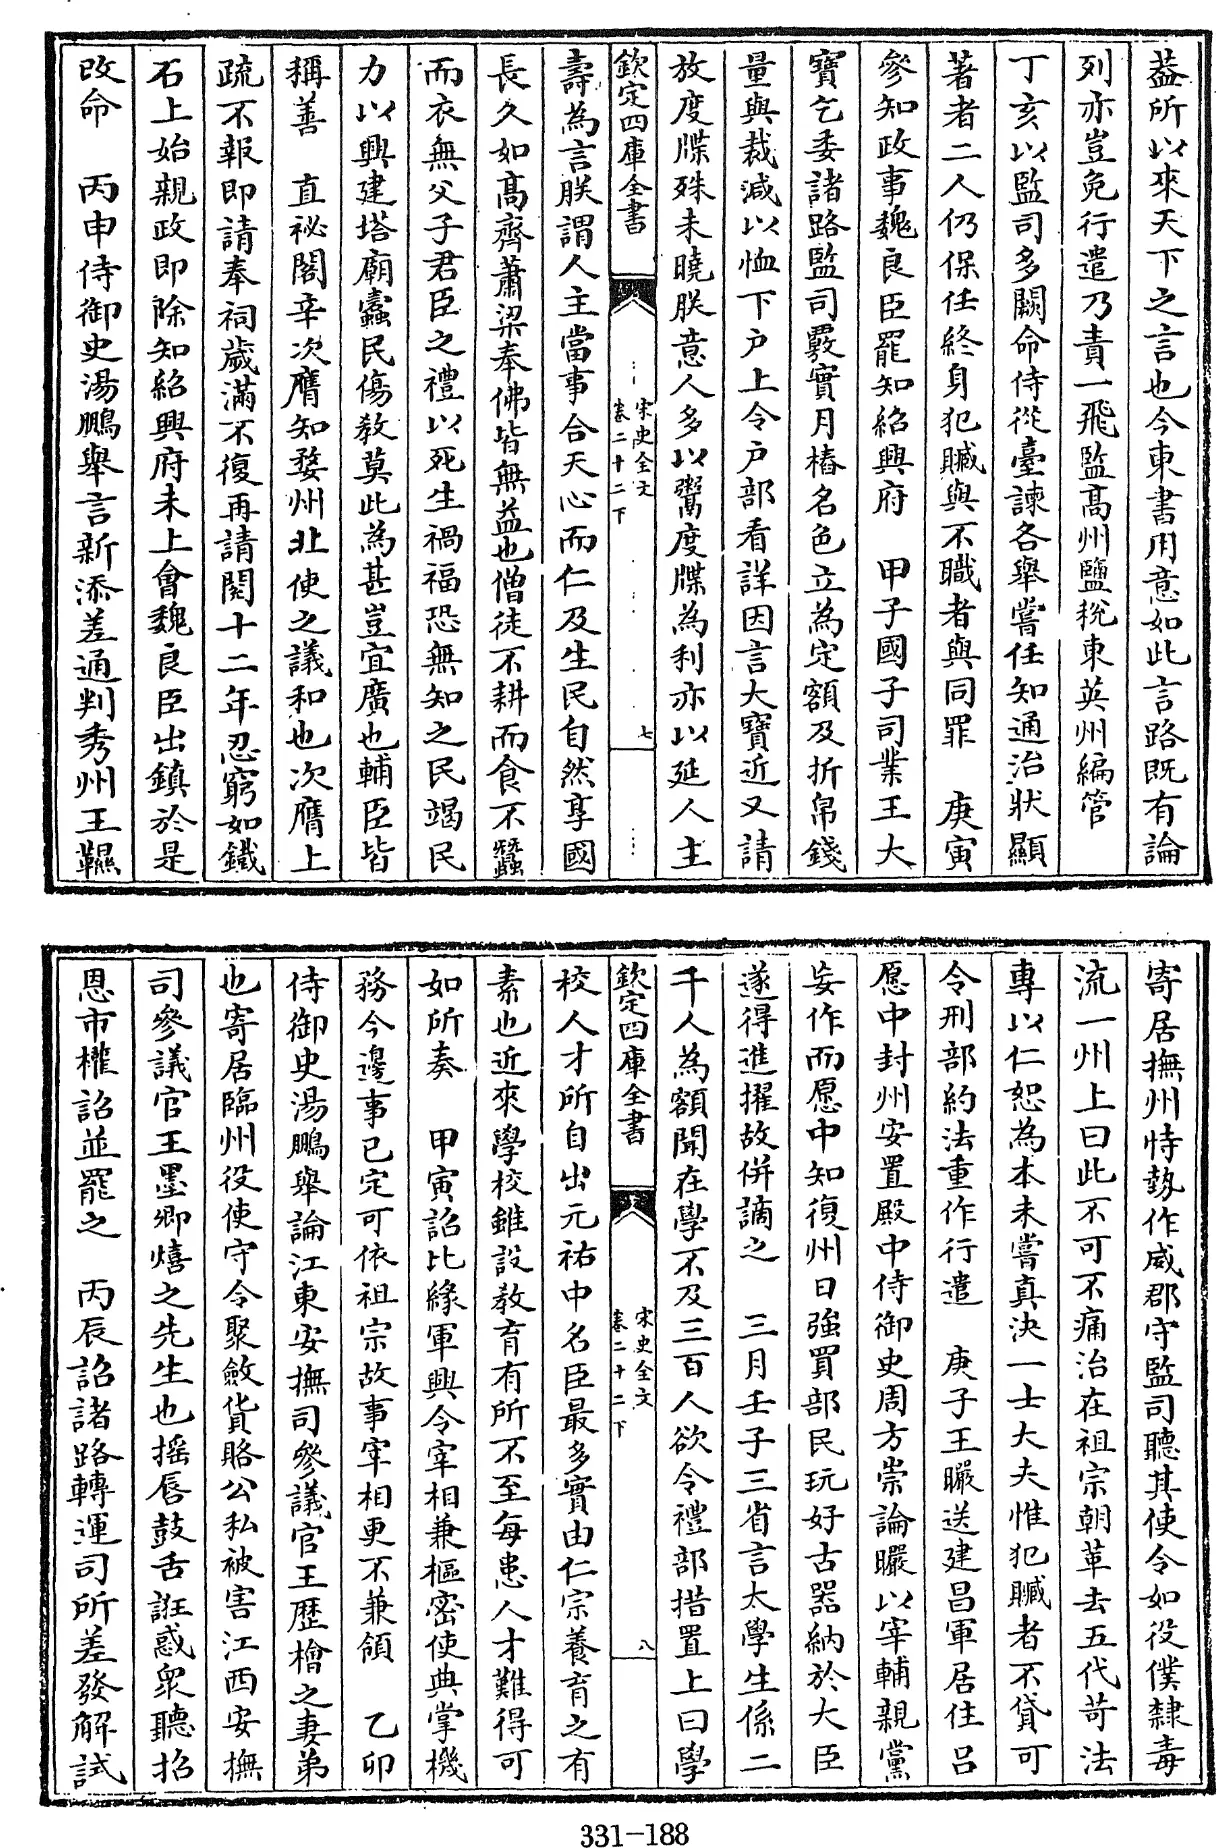 葢所以來天下之言也今東書用意如此言路既有論
列亦豈免行遣乃責一飛監髙州鹽稅東英州編管
丁亥以監司多闕命侍從臺諫各舉嘗任知通治狀顯
著者二人仍保任終身犯贓與不職者與同罪　庚寅
參知政事魏良臣罷知紹興府　甲子國子司業王大
寶乞委諸路監司覈實月樁名色立為定額及折帛錢
量與裁減以恤下户上令户部看詳因言大寶近又請
放度牒殊未曉朕意人多以鬻度牒為利亦以延人主
欽定四庫全書
宋史全文
卷二十二下
七
壽為言朕謂人主當事合天心而仁及生民自然享國
長久如髙齊蕭梁奉佛皆無益也僧徒不耕而食不蠶
而衣無父子君臣之禮以死生禍福恐無知之民竭民
力以興建塔廟蠧民傷教莫此為甚豈宜廣也輔臣皆
稱善　直祕閣辛次膺知婺州北使之議和也次膺上
疏不報即請奉祠歳滿不復再請閲十二年忍窮如鐵
石上始親政即除知紹興府未上會魏良臣出鎮於是
改命　丙申侍御史湯鵬舉言新添差通判秀州王䍻
寄居撫州恃勢作威郡守監司聽其使令如役僕隸毒
流一州上曰此不可不痛治在祖宗朝革去五代苛法
專以仁恕為本未嘗真決一士大夫惟犯贓者不貸可
令刑部約法重作行遣　庚子王㬇送建昌軍居住吕
愿中封州安置殿中侍御史周方崇論㬇以宰輔親黨
妄作而愿中知復州日強買部民玩好古器納於大臣
遂得進擢故併謫之　三月壬子三省言太學生係二
千人為額聞在學不及三百人欲令禮部措置上曰學
欽定四庫全書
宋史全文
卷二十二下
八
校人才所自出元祐中名臣最多實由仁宗養育之有
素也近來學校雖設教育有所不至每患人才難得可
如所奏　甲寅詔比縁軍興令宰相兼樞密使典掌機
務今邊事已定可依祖宗故事宰相更不兼領　乙卯
侍御史湯鵬舉論江東安撫司參議官王歷檜之妻弟
也寄居臨州役使守令聚斂貨賂公私被害江西安撫
司參議官王墨卿熺之先生也揺唇鼓舌誑惑衆聽招
恩市權詔並罷之　丙辰詔諸路轉運司所差發解試
331-188